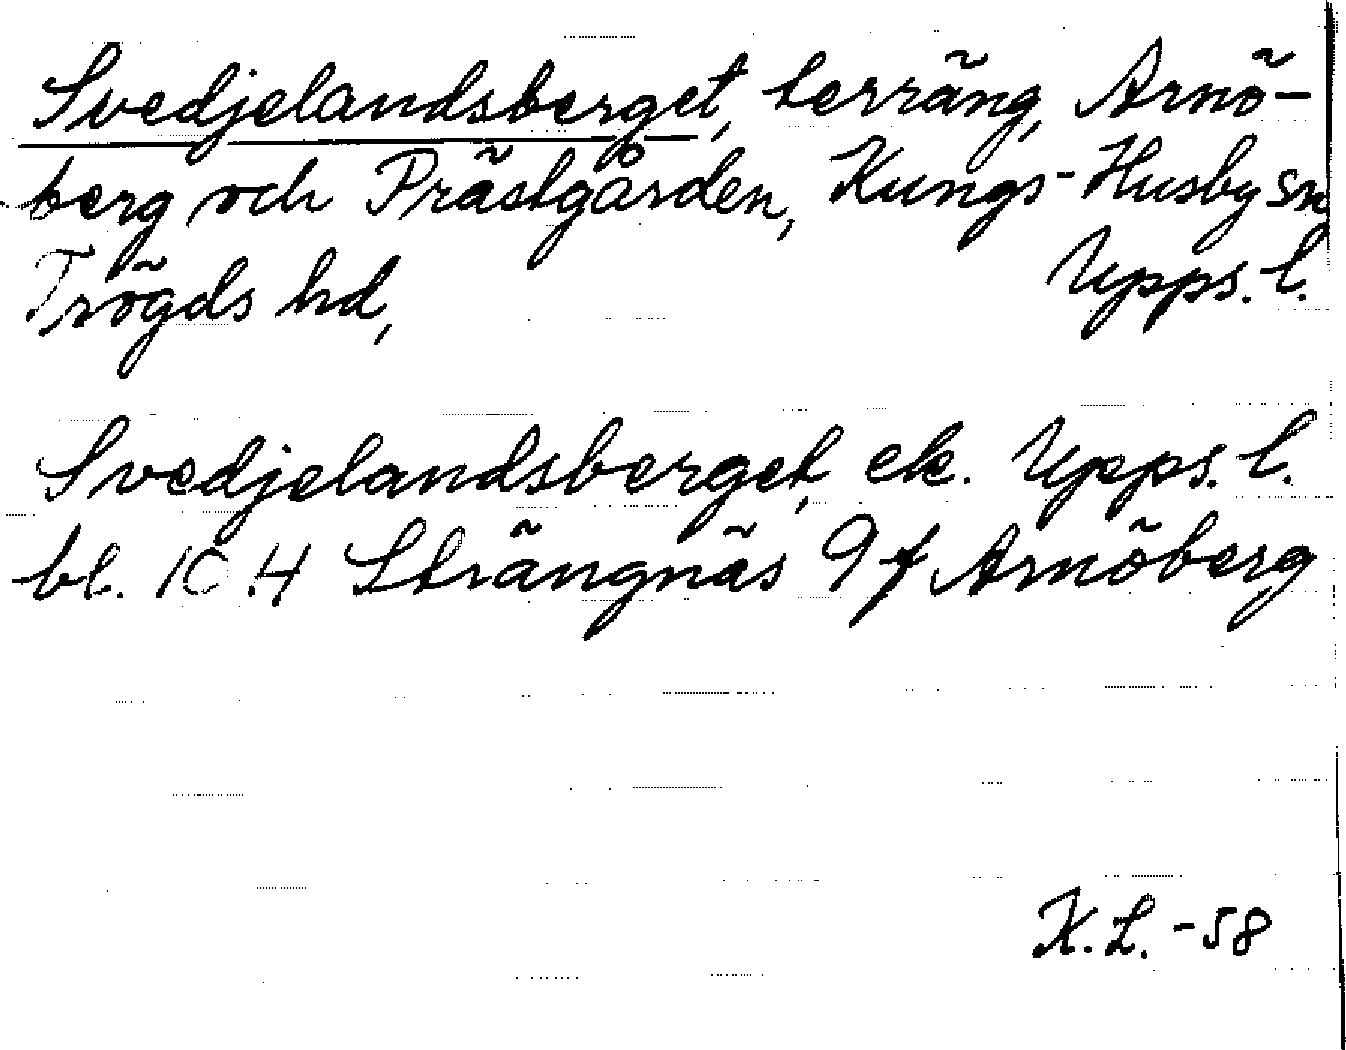 Svedjelandsberget, terräng, Arnö-
berg och Prästgården, Kungs-Husby sn
Trögds hd, Upps. l.
Svedjelandsberget, ek. Upps. l.
bl. 10 H Strängnäs 9 f Arnöberg
K.L. -58